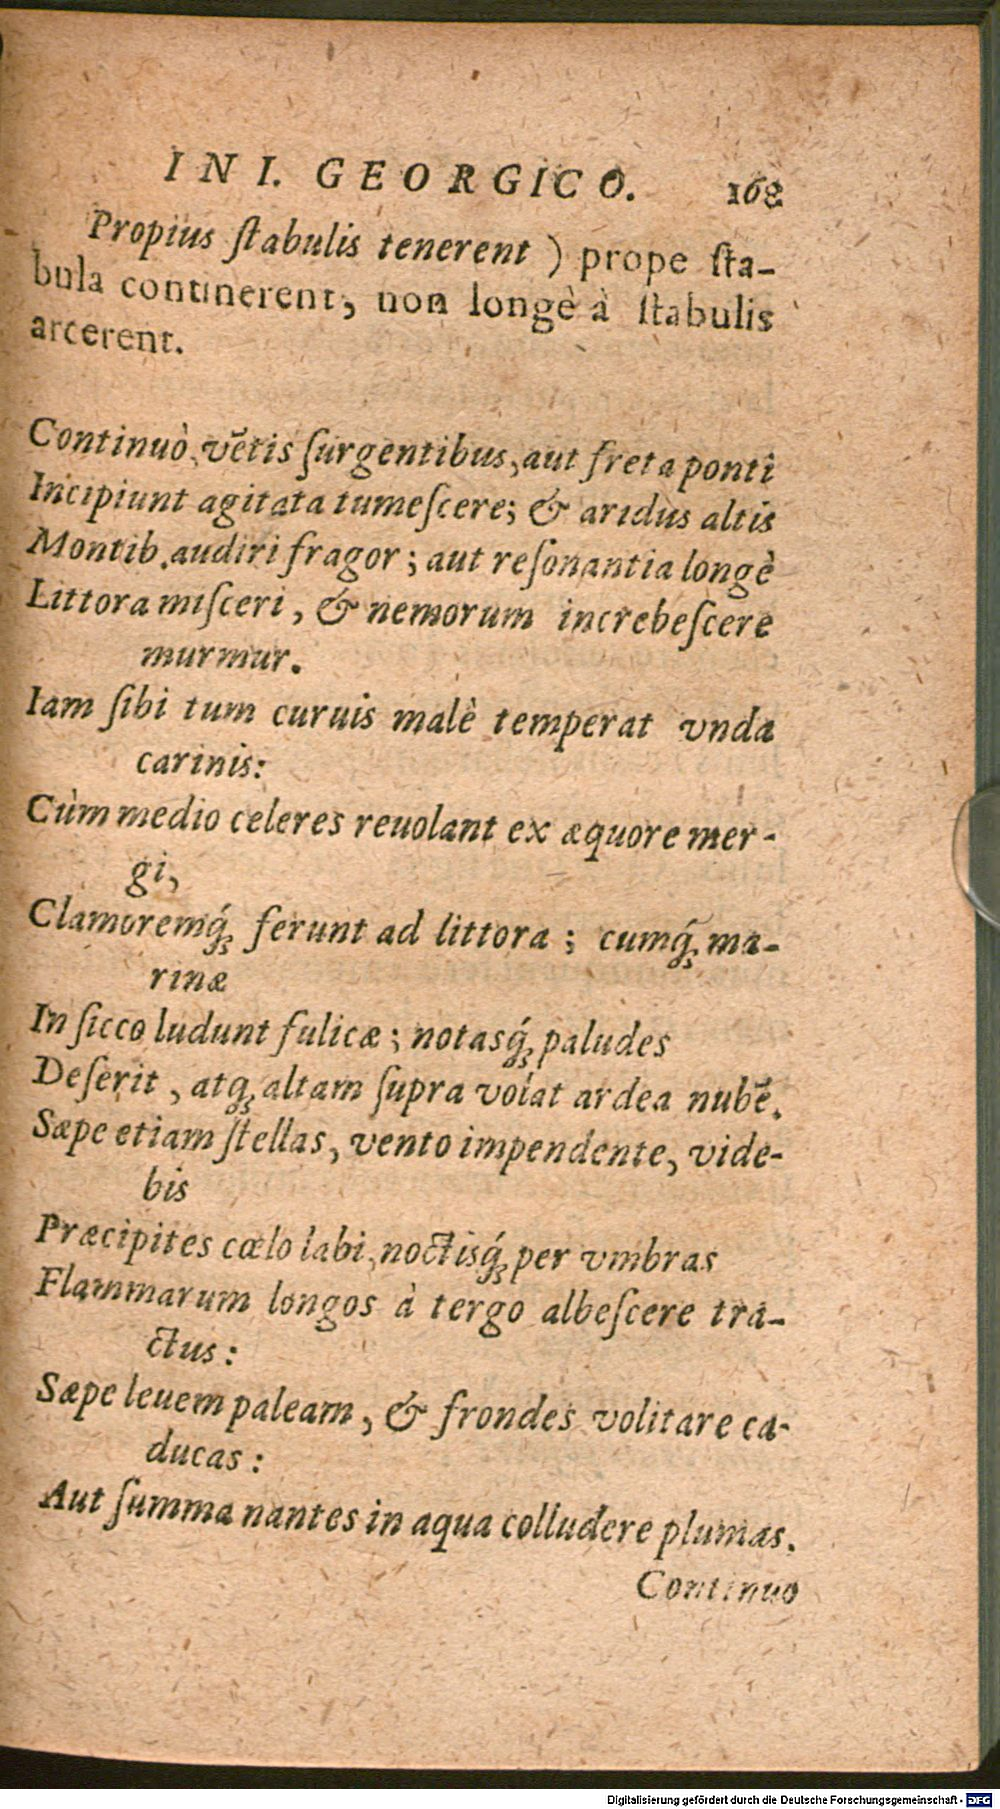 IN I. GEORGICO. 168
Propius ſtabulis tenerent ) prope ſta-
bula continerent, non longè à ſtabulis
arcerent.
Continuò vētis ſurgentibus, aut freta ponti
Incipiunt agitata tumeſcere; & aridus altis
Montib. audiri fragor; aut reſonantia longè
Littora miſceri, & nemorum increbeſcere
murmur.
Iam ſibi tum curuis malè temperat vnda
carinis:
Cùm medio celeres reuolant ex æquore mer-
gi,
Clamoremq́; ferunt ad littora; cumq́; ma-
rinæ
In ſicco ludunt fulicæ; notasq́; paludes
Deſerit, atq; altam ſupra volat ardea nubē.
Sæpe etiam ſtellas, vento impendente, vide-
bis
Præcipites cœlo labi, noctisq́; per vmbras
Flammarum longos à tergo albeſcere tra-
ctus:
Sæpe leuem paleam, & frondes volitare ca-
ducas:
Aut ſumma nantes in aqua colludere plumas.
Continuo
Digitalisierung gefördert durch die Deutsche Forschungsgemeinschaft - DFG